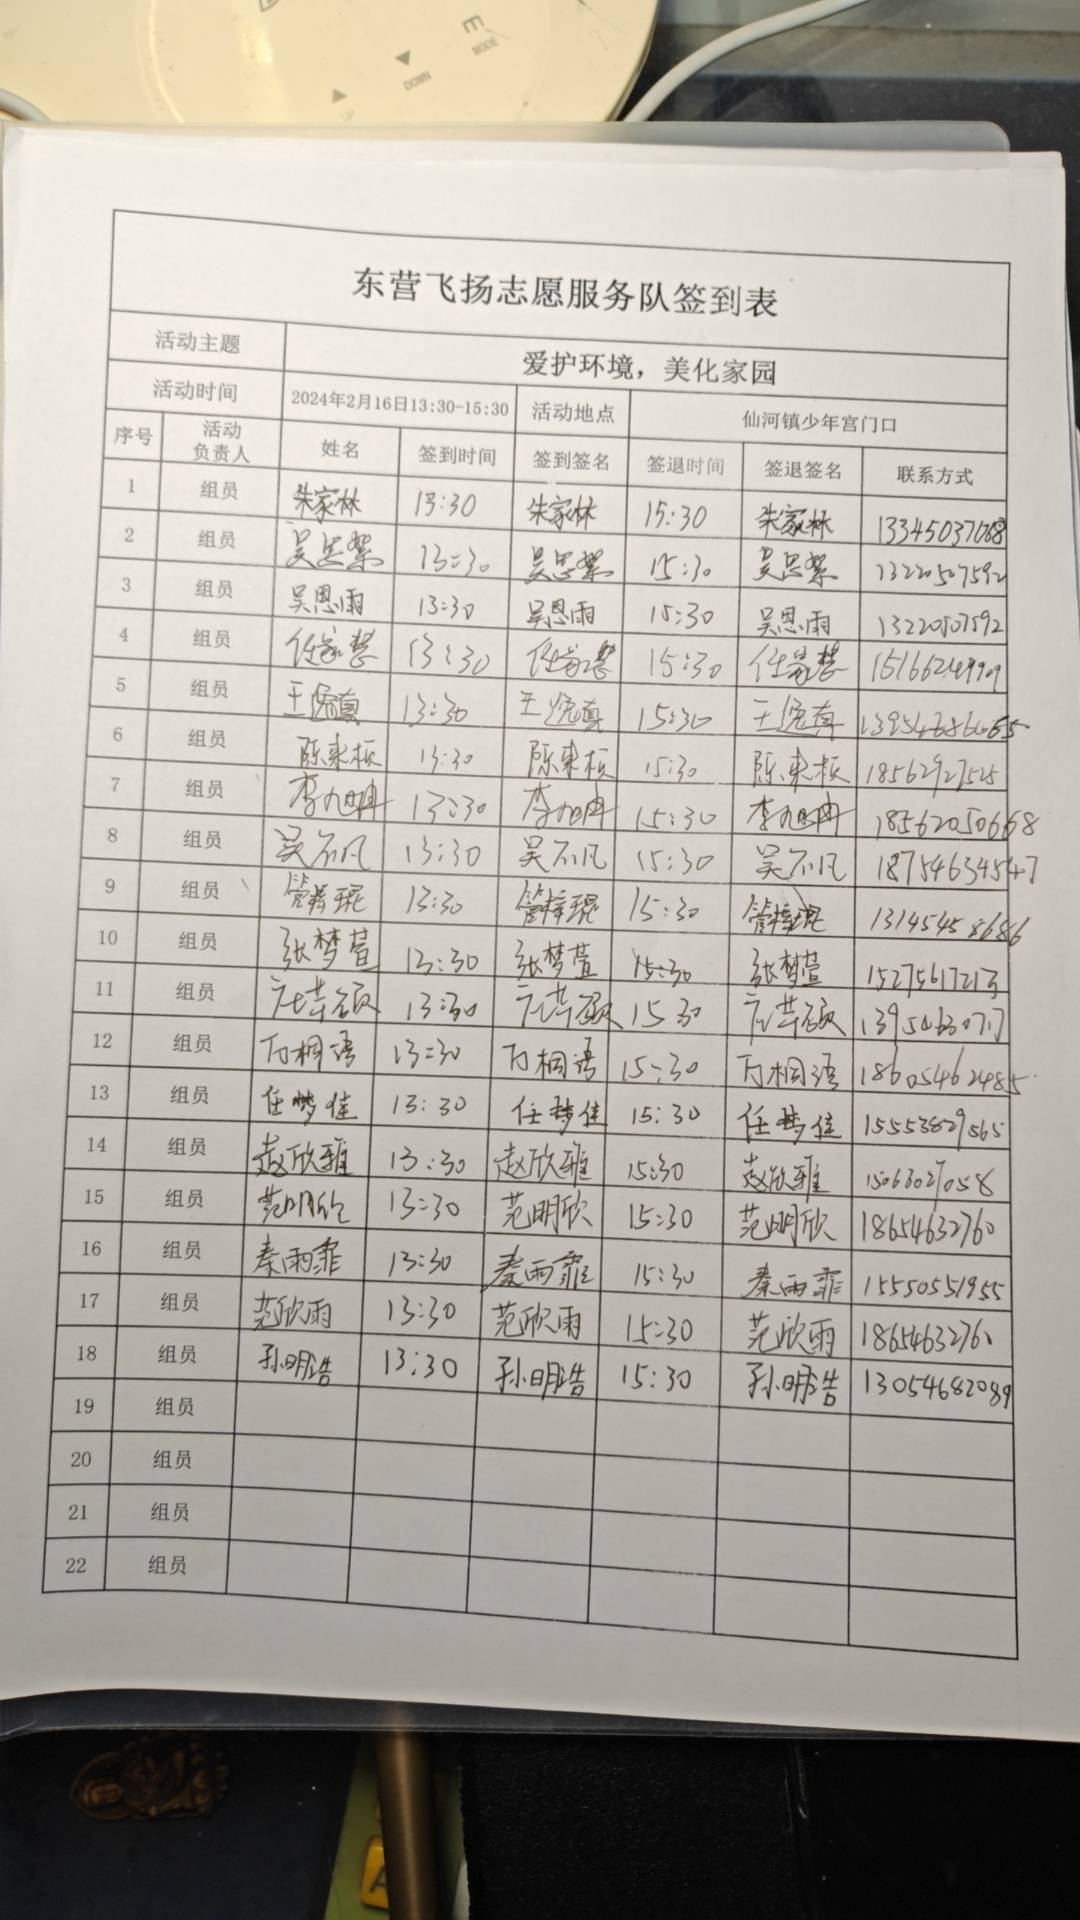 MODE
DOWN
东营飞扬志愿服务队签到表
活动主题 爱护环境，美化家园
活动时间 2024年2月16日13:30-15:30 活动地点 仙河镇少年宫门口
序号 活动负责人 姓名 签到时间 签到签名 签退时间 签退签名 联系方式
1 组员 朱家林 13:30 朱家林 15:30 朱家林
2 组员 吴思絮 13:30 吴思絮 15:30 吴思絮 13220507592
3 组员 吴恩雨 13:30 吴恩雨 15:30 吴恩雨 13220507592
4 组员 任家慧 13:30 任家慧 15:30 任家慧
5 组员 13:30 15:30
6 组员 陈来桢 13:30 陈来桢 15:30 陈来桢 18562927525
7 组员 李旭冉 13:30 李旭冉 15:30 李旭冉 18562050668
8 组员 吴不凡 13:30 吴不凡 15:30 吴不凡 18754634547
9 组员 管梓琨 13:30 管梓琨 15:30 管梓琨 13145458686
10 组员 张梦萱 13:30 张梦萱 15:30 张梦萱 15275617213
11 组员 13:30 15:30
12 组员 万桐语 13:30 万桐语 15:30 万桐语 18605462485
13 组员 任梦佳 13:30 任梦佳 15:30 任梦佳 15553829565
14 组员 赵欣雅 13:30 赵欣雅 15:30 赵欣雅 15063027058
15 组员 范明欣 13:30 范明欣 15:30 范明欣 18654632760
16 组员 秦雨霏 13:30 秦雨霏 15:30 秦雨霏 15550551955
17 组员 范欣雨 13:30 范欣雨 15:30 范欣雨 18654632760
18 组员 孙明浩 13:30 孙明浩 15:30 孙明浩 13054682089
19 组员
20 组员
21 组员
22 组员